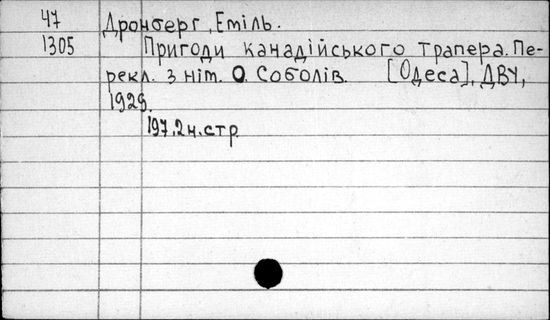 47 Дронберг, Еміль.
1305 Пригоди канадійського трапера. Пе-
рекл. з нім. О. Соболів. [Одеса], ДВУ,
1929.
197, 2 н. стр.